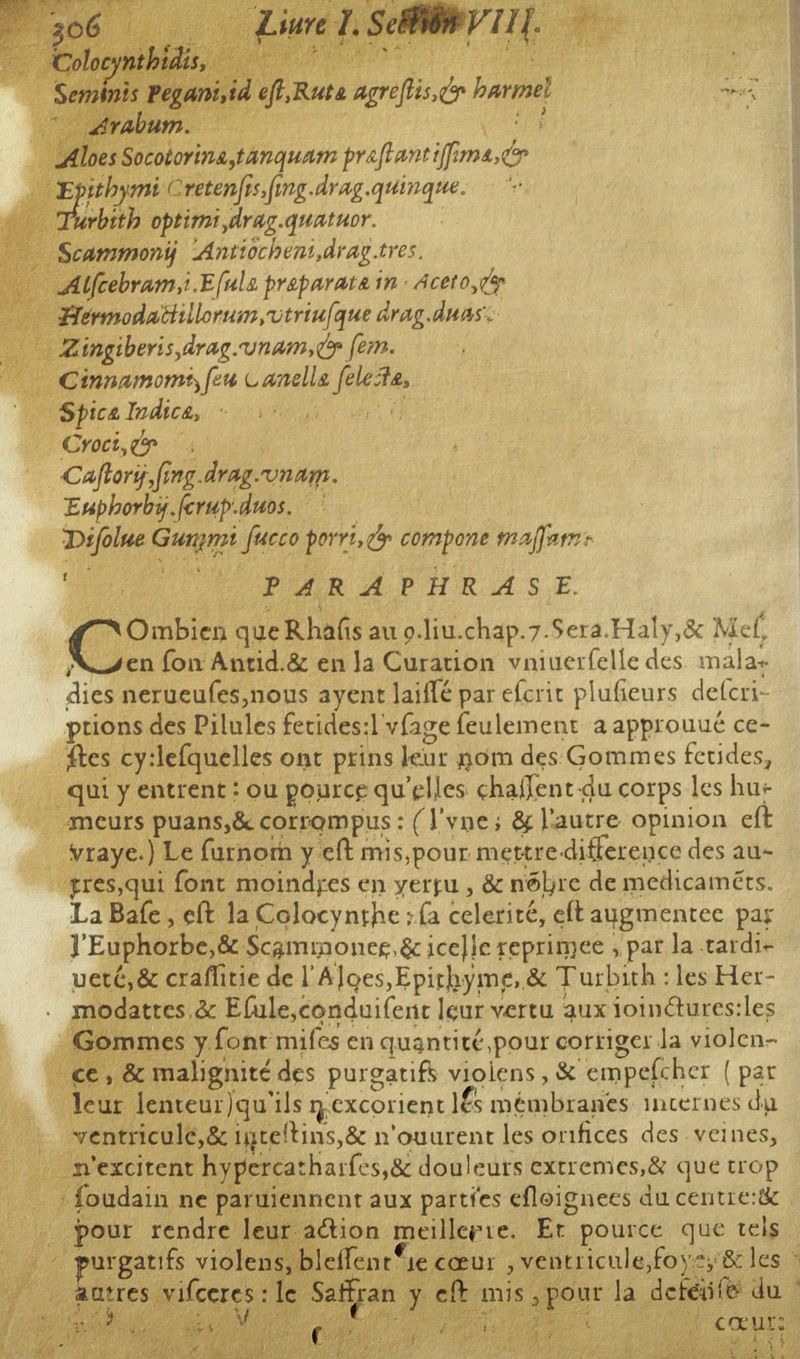 306 Liure I. Section VIII.
Colocynthidis,
Seminis Pegani,id eſt,Rutæ agreſtis,& harmel
Arabum.
Aloes Socotorinæ,tanquam præſtantiſſimæ,&
Epithymi Cretenſis,ſing.drag.quinque.
Turbith optimi,drag.quatuor.
Scammonij Antiocheni,drag.tres.
Alſcebram,i.Eſulæ præparatæ in Aceto,&
Hermodactillorum,vtriuſque drag.duas.
Zingiberis,drag.vnam,& ſem.
Cinnamomi,ſeu Canellæ ſelectæ,
Spicæ Indicæ,
Croci,&
Caſtorij,ſing.drag.vnam.
Euphorbij.ſcrup.duos.
Diſolue Gummi ſucco porri,& compone maſſam.
PARAPHRASE.
COmbien que Rhaſis au 9.liu.chap.7.Sera.Haly,& Meſ.
en ſon Antid.& en la Curation vniuerſelle des mala-
dies nerueuſes,nous ayent laiſſé par eſcrit pluſieurs deſcri-
ptions des Pilules fetides:l'vſage ſeulement a approuué ce-
ſtes cy:leſquelles ont prins leur nom des Gommes fetides,
qui y entrent : ou pource qu'elles chaſſent du corps les hu-
meurs puans,& corrompus : (l'vne ; & l'autre opinion eſt
vraye.) Le ſurnom y eſt mis,pour mettre difference des au-
tres,qui ſont moindres en vertu , & nõbre de medicamẽts.
La Baſe , eſt la Colocynthe : ſa celerité, eſt augmentee par
l'Euphorbe,& Scammonee,& icelle reprimee , par la tardi-
ueté,& craſſitie de l'Aloes,Epithyme, & Turbith : les Her-
modattes,& Eſule,conduiſent leur vertu aux ioinctures:les
Gommes y ſont miſes en quantité,pour corriger la violen-
ce , & malignité des purgatifs violens , & empeſcher ( par
leur lenteur)qu'ils n'excorient les membranes internes du
ventricule,& inteſtins,& n'ouurent les orifices des veines,
n'excitent hypercatharſes,& douleurs extremes,& que trop
ſoudain ne paruiennent aux parties eſloignees du centre:&
pour rendre leur action meilleure. Et pource que tels
purgatifs violens, bleſſent le cœur , ventricule,foye,& les
autres viſceres : le Saffran y eſt mis , pour la defenſe du
cœur: